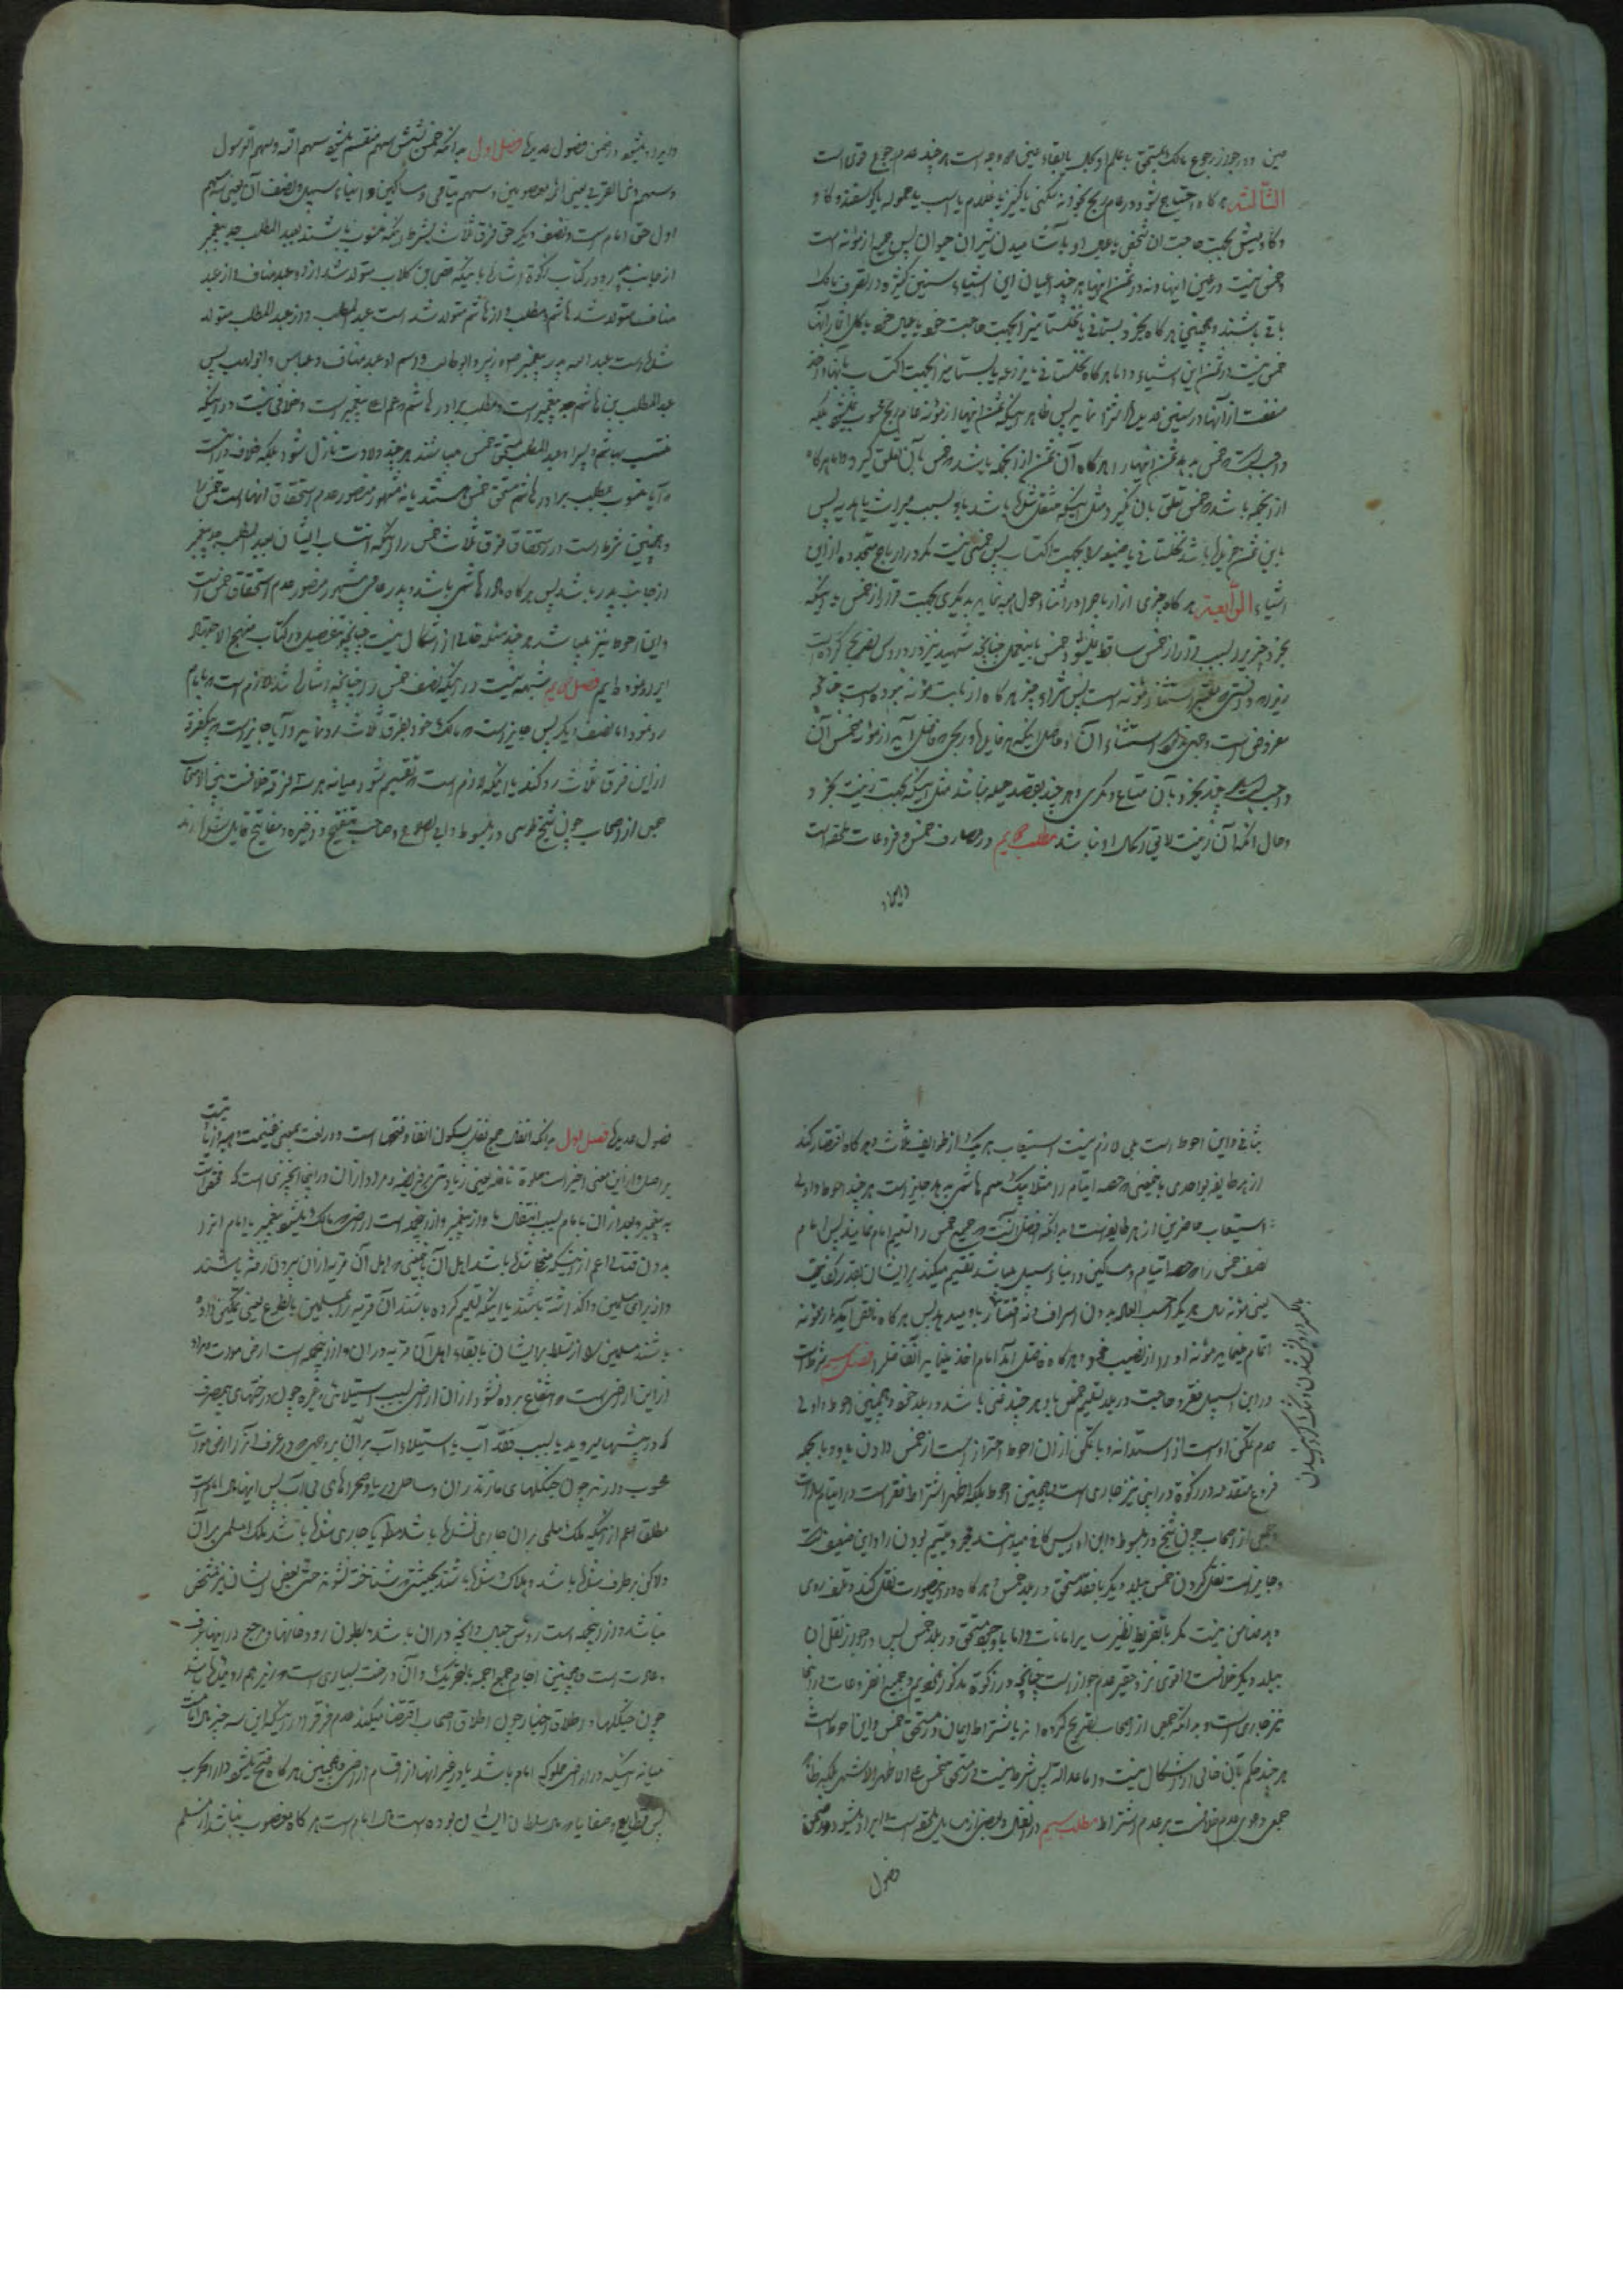 عین و در جواز رجوع مالک بمستحق با علم او بلکه با بقاء عین هم وجه است هر چند عدم رجوع قوی است
الثالثة هر گاه احتیاج شود در عام ربح بخرد نه مسکنی یا کنیز یا غلام یا اسب یا حموله یا کوسفند و کاو
و کاومیش بجهت حاجت ان شخص یا عیال او یا آشامیدن شیر ان حیوان پس جمیع از مؤنه است
و خمس نیست در عین اینها و نه در ثمن اینها هر چند اعیان این اشیاء سنین کثیره در تصرف مالک
باقی باشند و همچنین هر کاه بخرد بستانی یا نخلستانی را بجهت حاجت خود یا عیال خود باکل اثمار آنها
خمس نیست در ثمن این اشیاء و اما هر کاه نخلستانی یا مزرعه یا بستانی را بجهت اکتساب بآنها و اخذ
منفعت از آنها در سنین عدیده شراء نماید پس ظاهر اینکه ثمن اینها از مؤنه عام ربح محسوب نمیشود بلکه
واجبست خمس بدهد ثمن اینها را هر کاه آن ثمن از آنجمله باشد که خمس بآن تعلق کیرد و اما هر کاه
از آنجمله باشد که خمس تعلق بان نکیرد مثل اینکه منتقل شده باشد باو بسبب میراث یا هدیه پس
باین ثمن خریده باشد نخلستانی یا ضیعه را بجهت اکتساب پس خمسی نیست مکر در ارباح متجدده از این
اشیاء الرابعة هر کاه چیزی از ارباح را در اثناء حول هبه نماید بدیکری بجهت فرار از خمس یا اینکه
بخرد چیزی را بسبب فرار از خمس ساقط نمیشود خمس باینعمل چنانچه شهید نیز در دروس تصریح کرده است
زیرا که در شرع معتبر استثناء مؤنه است پس شراء چیز هر کاه از بابت مؤنه نبوده است چنانچه
مفروض است وجهی ندارد استثناء آن و حاصل اینکه هر فایده و ربحی که فاضل آید از مؤنه خمس آن
واجب است هر چند بخرد بان متاع دیکری و هر چند بقصد حیله نباشد مثل اینکه بجهت زینت بخرد
و حال آنکه آن زینت لایق بحال او نباشد مطلب دویم در مصارف خمس و فروعات ملحقه است
و ایراد
و ایراد میشود در ضمن فصول عدیده فصل اول بدانکه خمس بشش سهم منقسم میشود سهم الله و سهم الرسول
و سهم ذی القربی یعنی ائمه معصومین و سهم یتامی و مساکین و ابناء سبیل و نصف آن یعنی سه سهم
اول حق امام است و نصف دیکر حق فرق ثلاث بشرط اینکه منسوب باشند بعبد المطلب جد پیغمبر
از جانب پدر و در کتاب زکوة اشاره باینکه قصی بن کلاب متولد شد از او عبد مناف و از عبد
مناف متولد شد هاشم و مطلب و از هاشم متولد شده است عبد المطلب و از عبد المطلب متولد
شده است عبد الله پدر پیغمبر و حمزه و زبیر و ابوطالب و اسم او عبد مناف و عباس و ابولهب پس
عبد المطلب بن هاشم جد پیغمبر است و مطلب برادر هاشم و عم اب پیغمبر است و خلافی نیست در اینکه
منتسب بهاشم و پسر او عبد المطلب مستحق خمس میباشند هر چند ولادت نازل شود بلکه خلاف در اینست
که آیا منسوب بمطلب برادر هاشم مستحق خمس هستند یا نه مشهور و منصور عدم استحقاق انها است خمس را
و همچنین شرط است در استحقاق فرق ثلاث خمس را اینکه انتساب ایشان بعبد المطلب جد پیغمبر
از جانب پدر باشد پس هر کاه مادر هاشمی باشد و پدر عامی مشهور و منصور عدم استحقاق خمس است
و این احوط نیز میباشد هر چند مسئله خالی از اشکال نیست چنانچه تفصیل در کتاب منهج الاجتهاد
ایراد نموده ایم فصل دویم شبهه نیست در اینکه نصف خمس را چنانچه اشاره شد لازم است که بامام
رد نمود اما نصف دیکر پس جایز است که مالک خود بفرق ثلاث رد نماید و آیا جایز است هر یکفرقه
از این فرق ثلاث رد کند یا اینکه لازم است که تقسیم شود میانه هر سه فرقه خلافست بین الاصحاب
جمعی از اصحاب چون شیخ طوسی در مبسوط و ابی الصلاح و صاحب تنقیح و ذخیره و مفاتیح قایل شده اند
بثانی و این احوط است بلی لازم نیست استیعاب هر یک از طوایف ثلاث و هر کاه اقتصار کند
از هر طایفه بواحدی باینمعنی که حصه ایتام را مثلا بیک یتیم هاشمی بدهد جایز است هر چند احوط و اولی
استیعاب حاضرین از هر طایفه است و بدانکه افضل آنست که جمیع خمس را تسلیم امام نمایند پس امام
نصف خمس را که حصه ایتام و مساکین و ابناء سبیل میباشد تقسیم میکند بر ایشان بقدر کفایت
یعنی مؤنه سال هر یک را بحسب الحال بدون اسراف و نه اقتار باو میدهد پس هر کاه ناقص آید از مؤنه
اتمام مینماید مؤنه او را از نصیب خود و هر کاه فاضل آید امام اخذ مینماید آن فاضل را فصل سیم شرطست
در ابن السبیل فقر و حاجت در بلد تسلیم خمس باو هر چند غنی باشد در بلد خود و همچنین احوط و اولی
عدم تمکن او است از استدانه و با تمکن از ان احوط احتراز است از خمس دادن باو و بالجمله
فروع متقدمه در زکوة در اینجا نیز جاری است و همچنین احوط بلکه اظهر اشتراط فقر است در ایتام سادات
و بعضی از اصحاب چون شیخ در مبسوط و ابن ادریس کافی میدانند مجرد یتیم بودن را و این ضعیف است
و جایز است نقل کردن خمس ببلد دیکر با فقد مستحق در بلد خمس و هر کاه در اینصورت نقل کند و تلف روی
دهد ضامن نیست مکر با تفریط نظیر سایر امانات و اما با وجود مستحق در بلد خمس پس در جواز نقل ان
ببلد دیکر خلافست و اقوی نزد حقیر عدم جواز است چنانچه در زکوة مذکور نمودیم و جمیع انفروعات در اینجا
نیز جاری است و بدانکه جمعی از اصحاب تصریح کرده اند باشتراط ایمان در مستحق خمس و این احوط است
هر چند حکم بآن خالی از اشکال نیست و اما عدالت پس شرط نیست در مستحق خمس علی الاظهر الاشهر بلکه ظاهر
جمعی دعوی عدم خلافست بر عدم اشتراط مطلب سیم در انفال و بعضی از مسایل ملحقه است و ایراد میشود در ضمن
فصول
فصول عدیده فصل اول بدانکه انفال جمع نفل بسکون الفا و فتحها است و در لغت بمعنی غنیمت و هبه و زیادتیست
بر اصل و از این معنی اخیر است صلوة نافله یعنی زیادتی بر فریضه و مراد از ان در اینجا چیزی است که مختص است
به پیغمبر و بعد از ان بامام بسبب انتقال باو از پیغمبر و از انجمله است ارضی که مالک میشود پیغمبر یا امام انرا
بدون قتال اعم از اینکه منجلی شده باشند اهل آن باینمعنی که اهل آن قریه از ان بیرون رفته باشند
و از برای مسلمین واکذاشته باشند یا اینکه تسلیم کرده باشند آن قریه را بمسلمین بالطوع یعنی تمکین داده
باشند مسلمین را از تسلط بر ایشان با بقاء اهل آن قریه در ان و از اینجمله است ارض موات و مراد
از این ارضی است که انتفاع برده نشود از ان ارض بسبب استیلاء نی و غیره چون درختهای بیمصرف
که در بیشها میروید یا بسبب فقد آب یا استیلاء آب بر آن بر وجهی که در عرف انرا از ارض موات
محسوب دارند چون جنکلهای مازندران و ساحل دریا و صحراهای بی آب پس اینها مال امام است
مطلقا اعم از اینکه ملک مسلمی بر ان جاری نشده باشد مطلقا یا جاری شده باشد ملک مسلم بر آن
و لکن برطرف شده باشد و هلاک شده باشند بحیثیتی که شناخته نشوند حتی بعض ایشان نیز مشخص
نباشد و از اینجمله است رؤس جبال و آنچه در ان باشد و بطون رودخانها و مرجع در اینها عرف
و عادت است و همچنین اجام جمع اجمه بالتحریک و آن درخت بسیاری است که در هم روئیده باشد
چون جنکلها و اطلاق اخبار چون اطلاق اصحاب اقتضا میکند عدم فرق را در اینکه این سه چیز مال امامست
میانه اینکه در ارض مملوکه امام باشد یا در غیر انها از اقسام ارض و همچنین هر کاه فتح میشود دار الحرب
پس قطایع و صفایا که مال سلطان ایشان بوده است مال امام است هر کاه مغصوب نباشد از مسلم